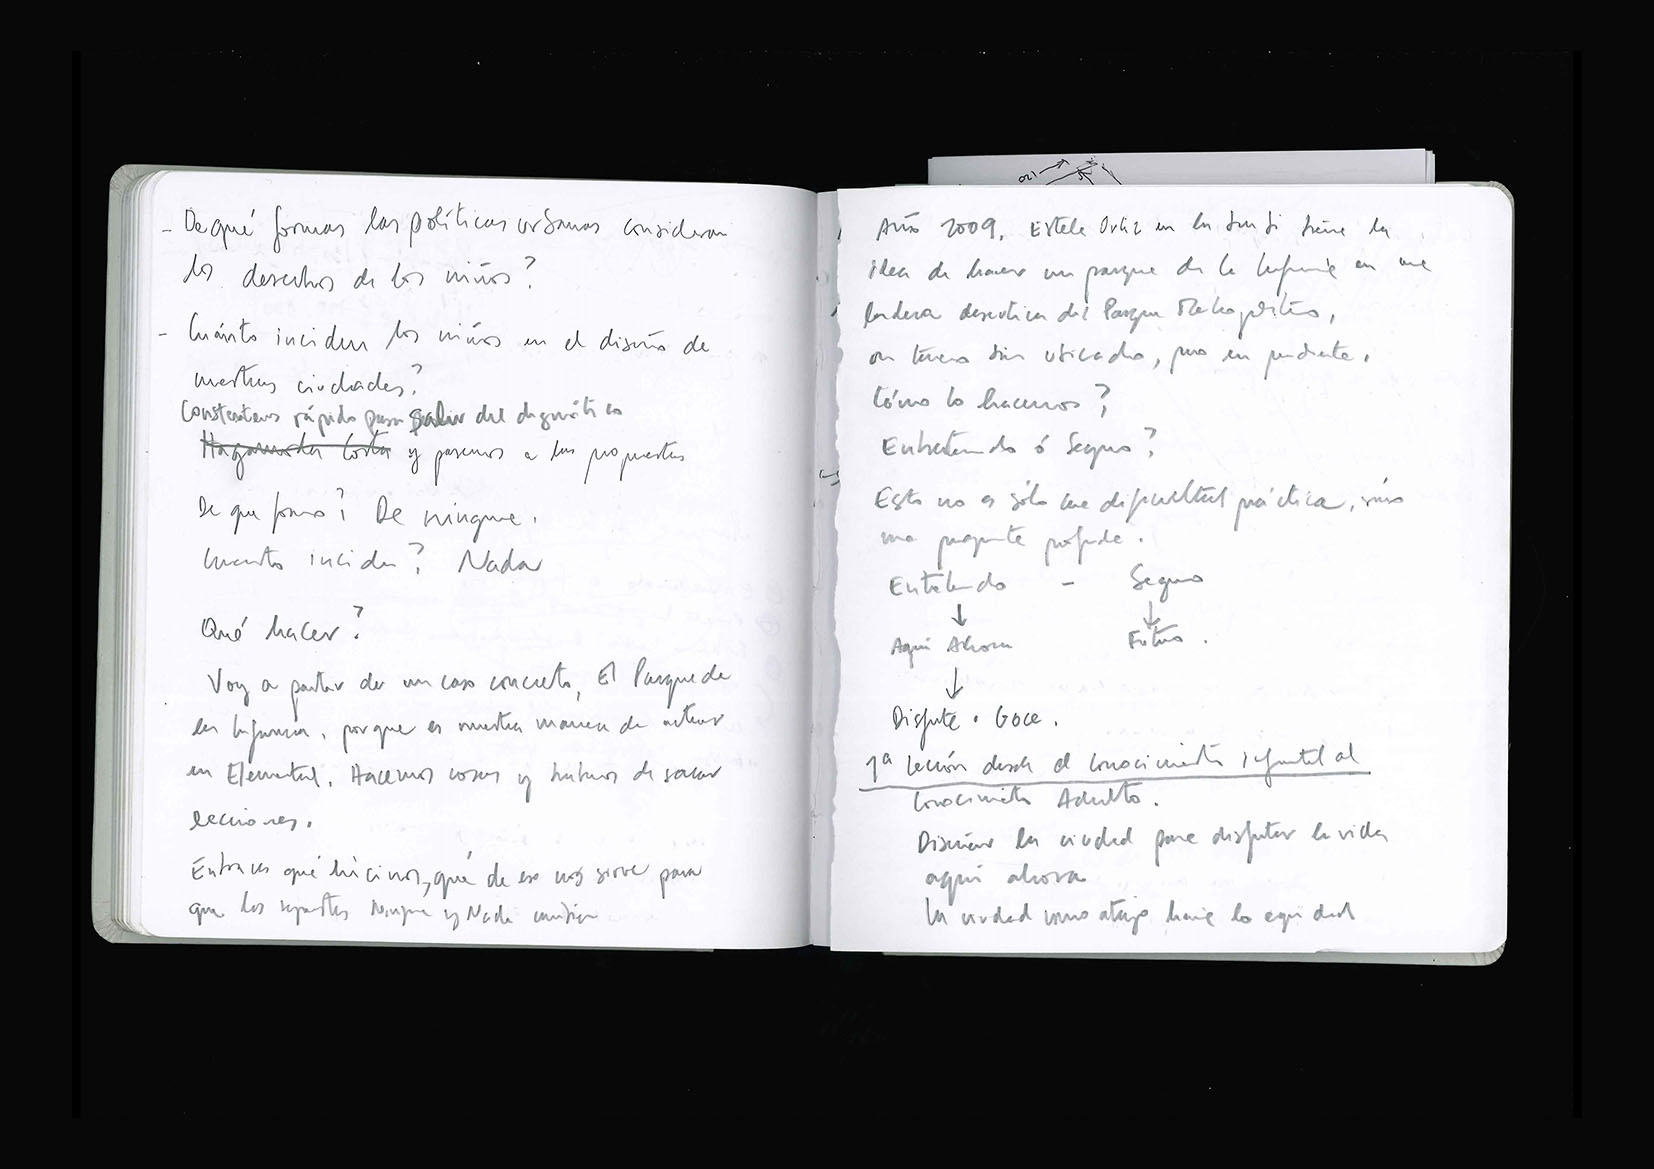 - De qué formas las políticas urbanas consideran
los derechos de los niños?
- Cuánto inciden los niños en el diseño de
nuestras ciudades?
Contestemos rápido para salir del diagnóstico
Hagamosla Corta y pasemos a las propuestas
De que forma? De ninguna.
Cuanto inciden? Nada
Qué hacer?
Voy a partir de un caso concreto, El Parque de
la Infancia, porque es nuestra manera de actuar
en Elemental. Hacemos cosas y tratamos de sacar
lecciones.
Entonces qué hicimos, qué de eso nos sirve para
que las respuestas Ninguna y Nada cambien
Año 2009, Estela Ortiz en la Junji tiene la
idea de hacer un parque de la Infancia en una
ladera desértica del Parque Metropolitano,
un terreno bien ubicado, pero en pendiente.
Cómo lo hacemos?
Entretenido ó Seguro?
Esto no es sólo una dificultad práctica, sino
una pregunta profunda.
Entretenido - Seguro
↓ ↓
Aquí Ahora Futuro.
↓
Disfrute. Goce.
1ª Lección desde el Conocimiento infantil al
Conocimiento Adulto.
Diseñar la ciudad para disfrutar la vida
aquí ahora
La ciudad como atajo hacia la equidad